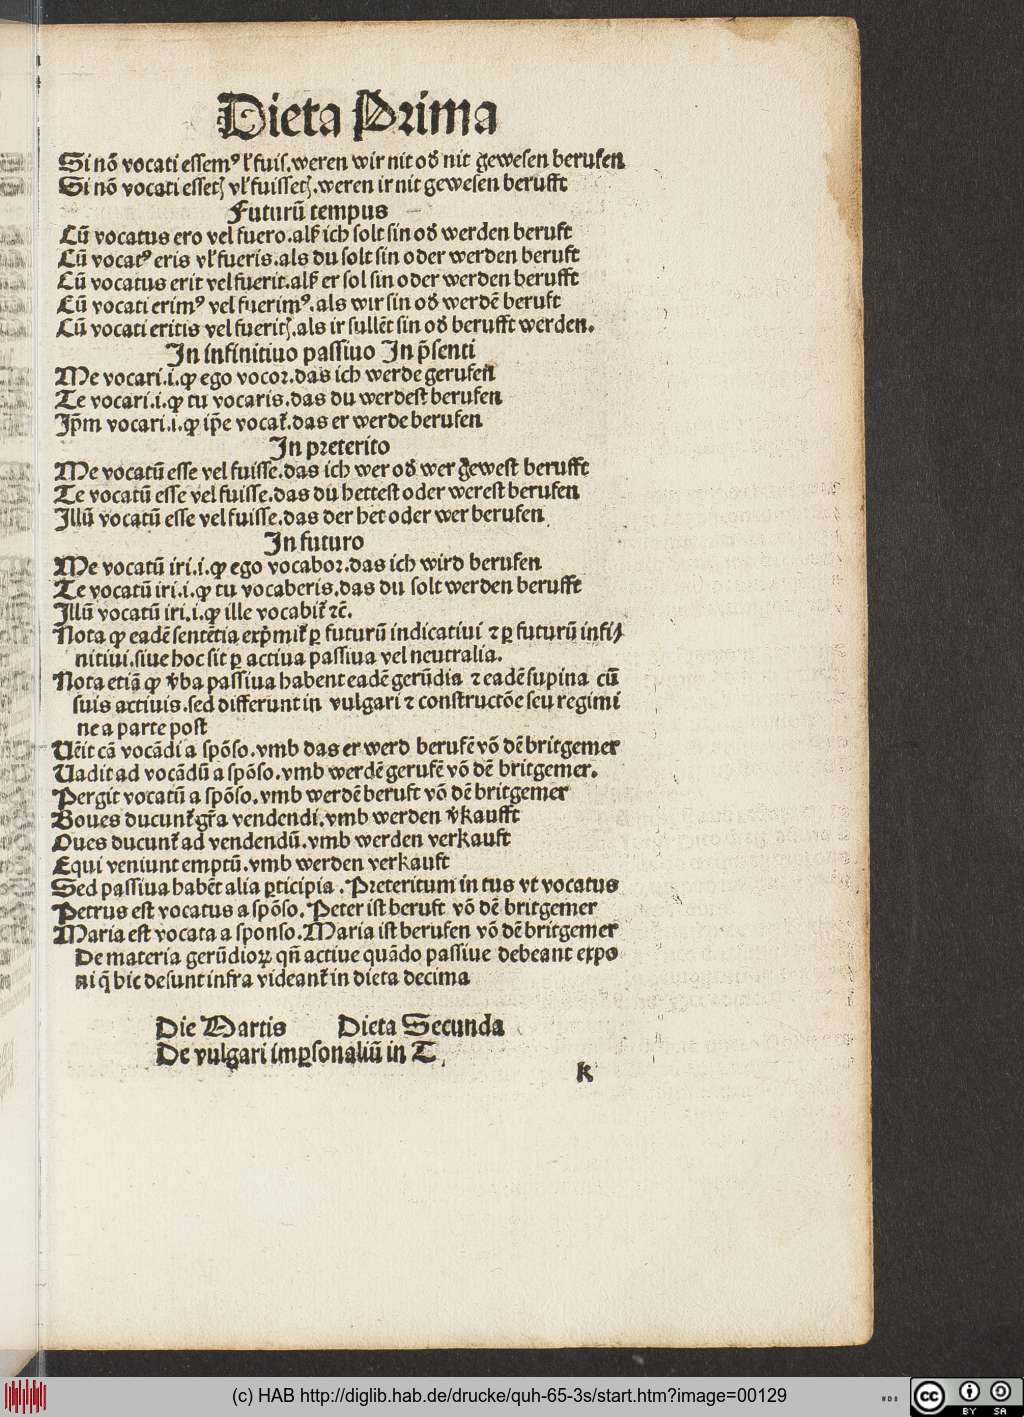 Dieta Prima
Si nõ vocati essemꝰ vl̕ fuis. weren wir nit od̕ nit gewesen berufen
Si nõ vocati essetꝭ vl̕ fuissetꝭ. weren ir nit gewesen berufft
Futurũ tempus
Cũ vocatus ero vel fuero. alß ich solt sin od̕ werden beruft
Cũ vocatꝰ eris vl̕ fueris. als du solt sin oder werden beruft
Cũ vocatus erit vel fuerit. alß er sol sin oder werden berufft
Cũ vocati erimꝰ vel fuerimꝰ. als wir sin od̕ werdẽ beruft
Cũ vocati eritis vel fueritꝭ. als ir sullẽt sin od̕ berufft werden.
In infinitiuo passiuo In p̃senti
Me vocari .i. ꝙ ego vocor. das ich werde gerufen
Te vocari .i. ꝙ tu vocaris. das du werdest berufen
Ip̃m vocari .i. ꝙ ip̃e vocat᷑. das er werde berufen
In preterito
Me vocatũ esse vel fuisse. das ich wer od̕ wer gewest berufft
Te vocatũ esse vel fuisse. das du hettest oder werest berufen
Illũ vocatũ esse vel fuisse. das der het oder wer berufen
In futuro
Me vocatũ iri .i. ꝙ ego vocabor. das ich wird berufen
Te vocatũ iri .i. ꝙ tu vocaberis. das du solt werden berufft
Illũ vocatũ iri .i. ꝙ ille vocabit᷑ ⁊c̃.
Nota ꝙ eadẽ sentẽtia exp̃mit᷑ ꝑ futurũ indicatiui ⁊ ꝑ futurũ infi⸗
nitiui. siue hoc sit ꝑ actiua passiua vel neutralia.
Nota etiã ꝙ v̕ba passiua habent eadẽ gerũdia ⁊ eadẽ supina cũ
suis actiuis. sed differunt in vulgari ⁊ constructõe seu regimi
ne a parte post
Uẽit cã vocãdi a spõso. vmb das er werd berufẽ võ dẽ britgemer
Uadit ad vocãdũ a spõso. vmb werdẽ gerufẽ võ dẽ britgemer.
Pergit vocatũ a spõso. vmb werdẽ beruft võ dẽ britgemer
Boues ducunt᷑ gr̃a vendendi. vmb werden v̕kaufft
Oues ducunt᷑ ad vendendũ. vmb werden verkauft
Equi veniunt emptũ. vmb werden verkauft
Sed passiua habẽt alia ꝑticipia. Preteritum in tus vt vocatus
Petrus est vocatus a spõso. Peter ist beruft võ dẽ britgemer
Maria est vocata a sponso. Maria ist berufen võ dẽ britgemer
De materia gerũdioꝝ qñ actiue quãdo passiue debeant expo
ni q̃ hic desunt infra videant᷑ in dieta decima
Die Martis Dieta Secunda
De vulgari imꝑsonaliũ in T.
k
(c) HAB http://diglib.hab.de/drucke/quh-65-3s/start.htm?image=00129
WDB
cc BY SA